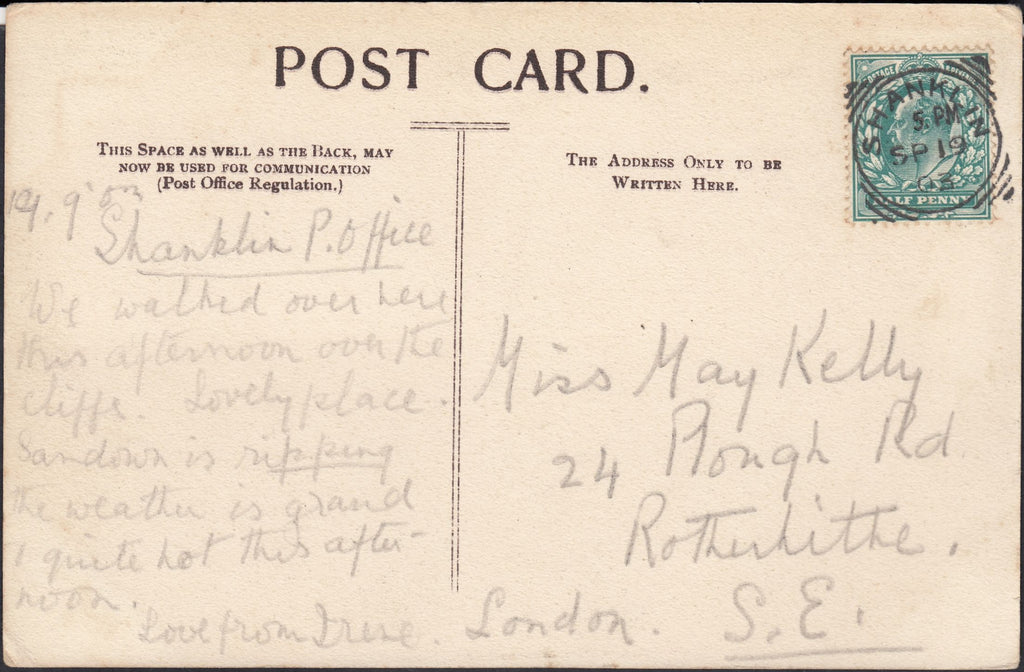 POST CARD.
THIS SPACE AS WELL AS THE BACK, MAY
NOW BE USED FOR COMMUNICATION
(Post Office Regulation.)
THE ADDRESS ONLY TO BE
WRITTEN HERE.
POSTAGE REVENUE
HALF PENNY
SHANKLIN
5 PM
SP 19
03
19.9.03
Shanklin P.Office
We walked over here
this afternoon over the
cliffs. Lovely place.
Sandown is ripping
the weather is grand
& quite hot this after-
noon.
Love from Irene.
Miss May Kelly
24 Plough Rd
Rotherhithe.
London. S.E.